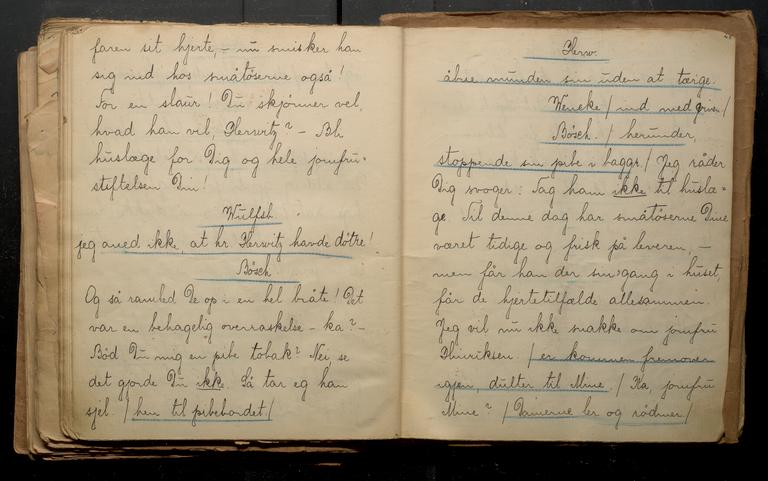 faren sit hjerte, – nu smisker han
sig ind hos småtøserne også!
For en slaur! Du skjønner vel,
hvad han vil, Herwitz? – Bli
huslæge for Dig og hele jomfru-
stiftelsen Din!
Wulfsb.
jeg aned ikke, at hr. Herwitz havde døtre!
Bösch.
Og så ramled De op i en hel bråte! Det
var en behagelig overraskelse – ka? –
Bød Du mig en pibe tobak? Nei, se
det gjorde Du ikke. Så tar eg han
sjel. / hen til pibebordet /
Herw.
åbne munden sin uden at tærge.
Wencke / ind med
Bösch. / herunder,
stoppende sin pibe i baggr. / Jeg råder
Dig svoger: Tag ham ikke til huslæ-
ge. Til denne dag har småtøserne Dine
været tidige og frisk på leveren, –
men får han der indgang i huset,
får de hjertetilfælde allesammen.
Jeg vil nu ikke snakke om jomfru
Hinriksen. / er kommen fremover
igjen, dulter til Mine. / Ka, jomfru
Mine? / Damerne ler og rødmer /